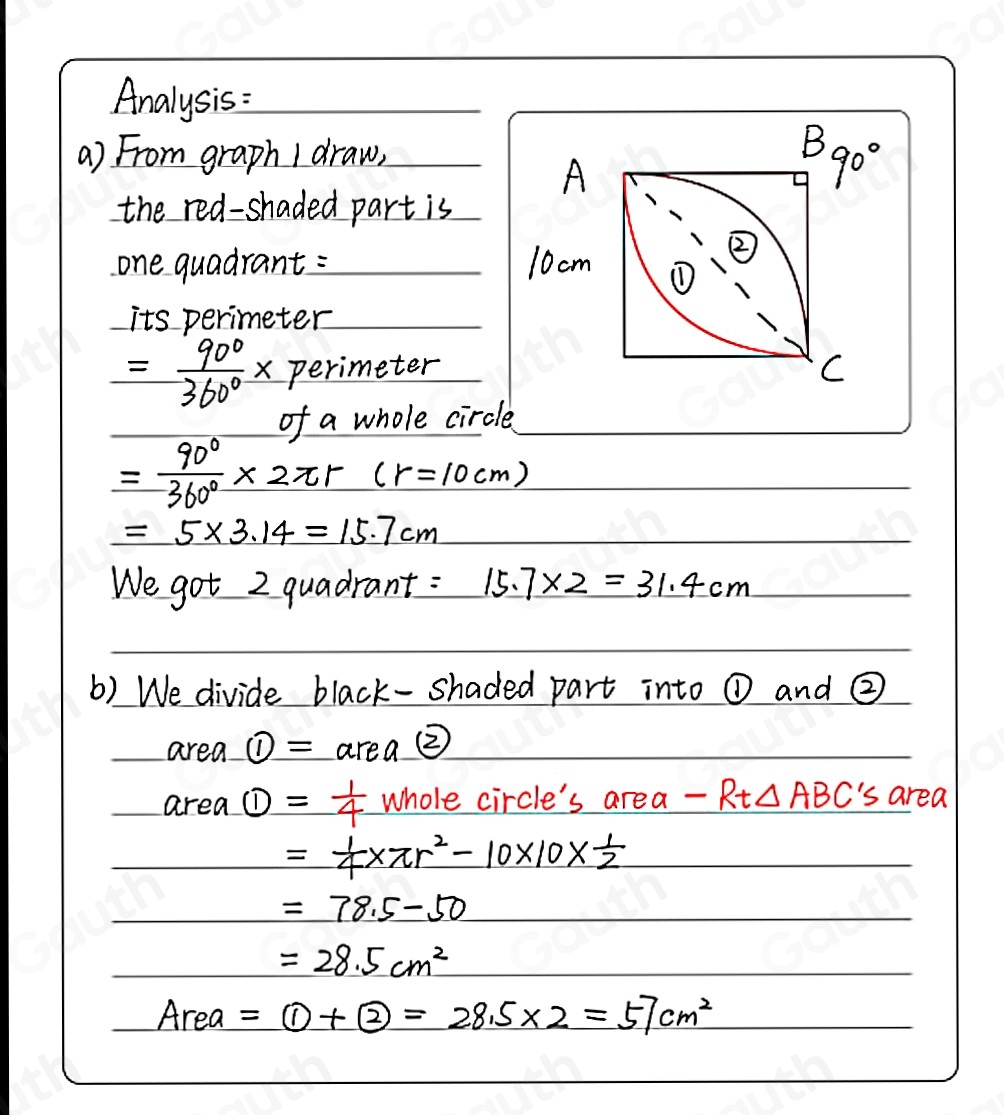 Analysis:
a) From graph I draw,
the red-shaded part is
one quadrant:
its perimeter
= 90°/360° × perimeter
of a whole circle
= 90°/360° × 2πr (r=10cm)
= 5×3.14 = 15.7cm
We got 2 quadrant: 15.7×2 = 31.4cm
A
B 90°
10cm
①
②
C
b) We divide black-shaded part into ① and ②
area ① = area ②
area ① = 1/4 whole circle's area - Rt△ABC's area
= 1/4×πr² - 10×10×1/2
= 78.5-50
= 28.5cm²
Area = ①+② = 28.5×2 = 57cm²
Gauth